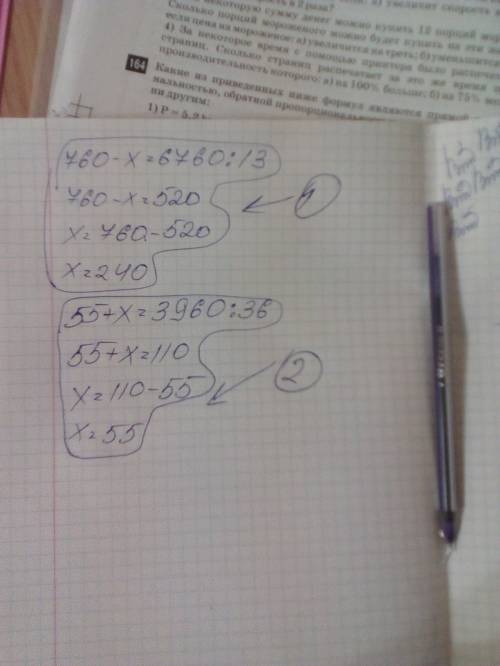 скорость в 2 раза?
некоторую сумму денег можно купить 12 порций
Сколько порций мороженого можно будет купить на эти
если цена на мороженое: а) увеличится на треть; б) уменьшится
4) За некоторое время с помощью принтера было
страниц. Сколько страниц распечатает за это же время
производительность которого: а) на 100% больше; б) на 75%
164 Какие из приведенных ниже формул являются прямой
нальностью, обратной пропорциональностью
ни другим:
1) P = 5,2
760-x=6760:13
760-x=520
x=760-520
x=240
1
55+x=3960:36
55+x=110
x=110-55
x=55
2